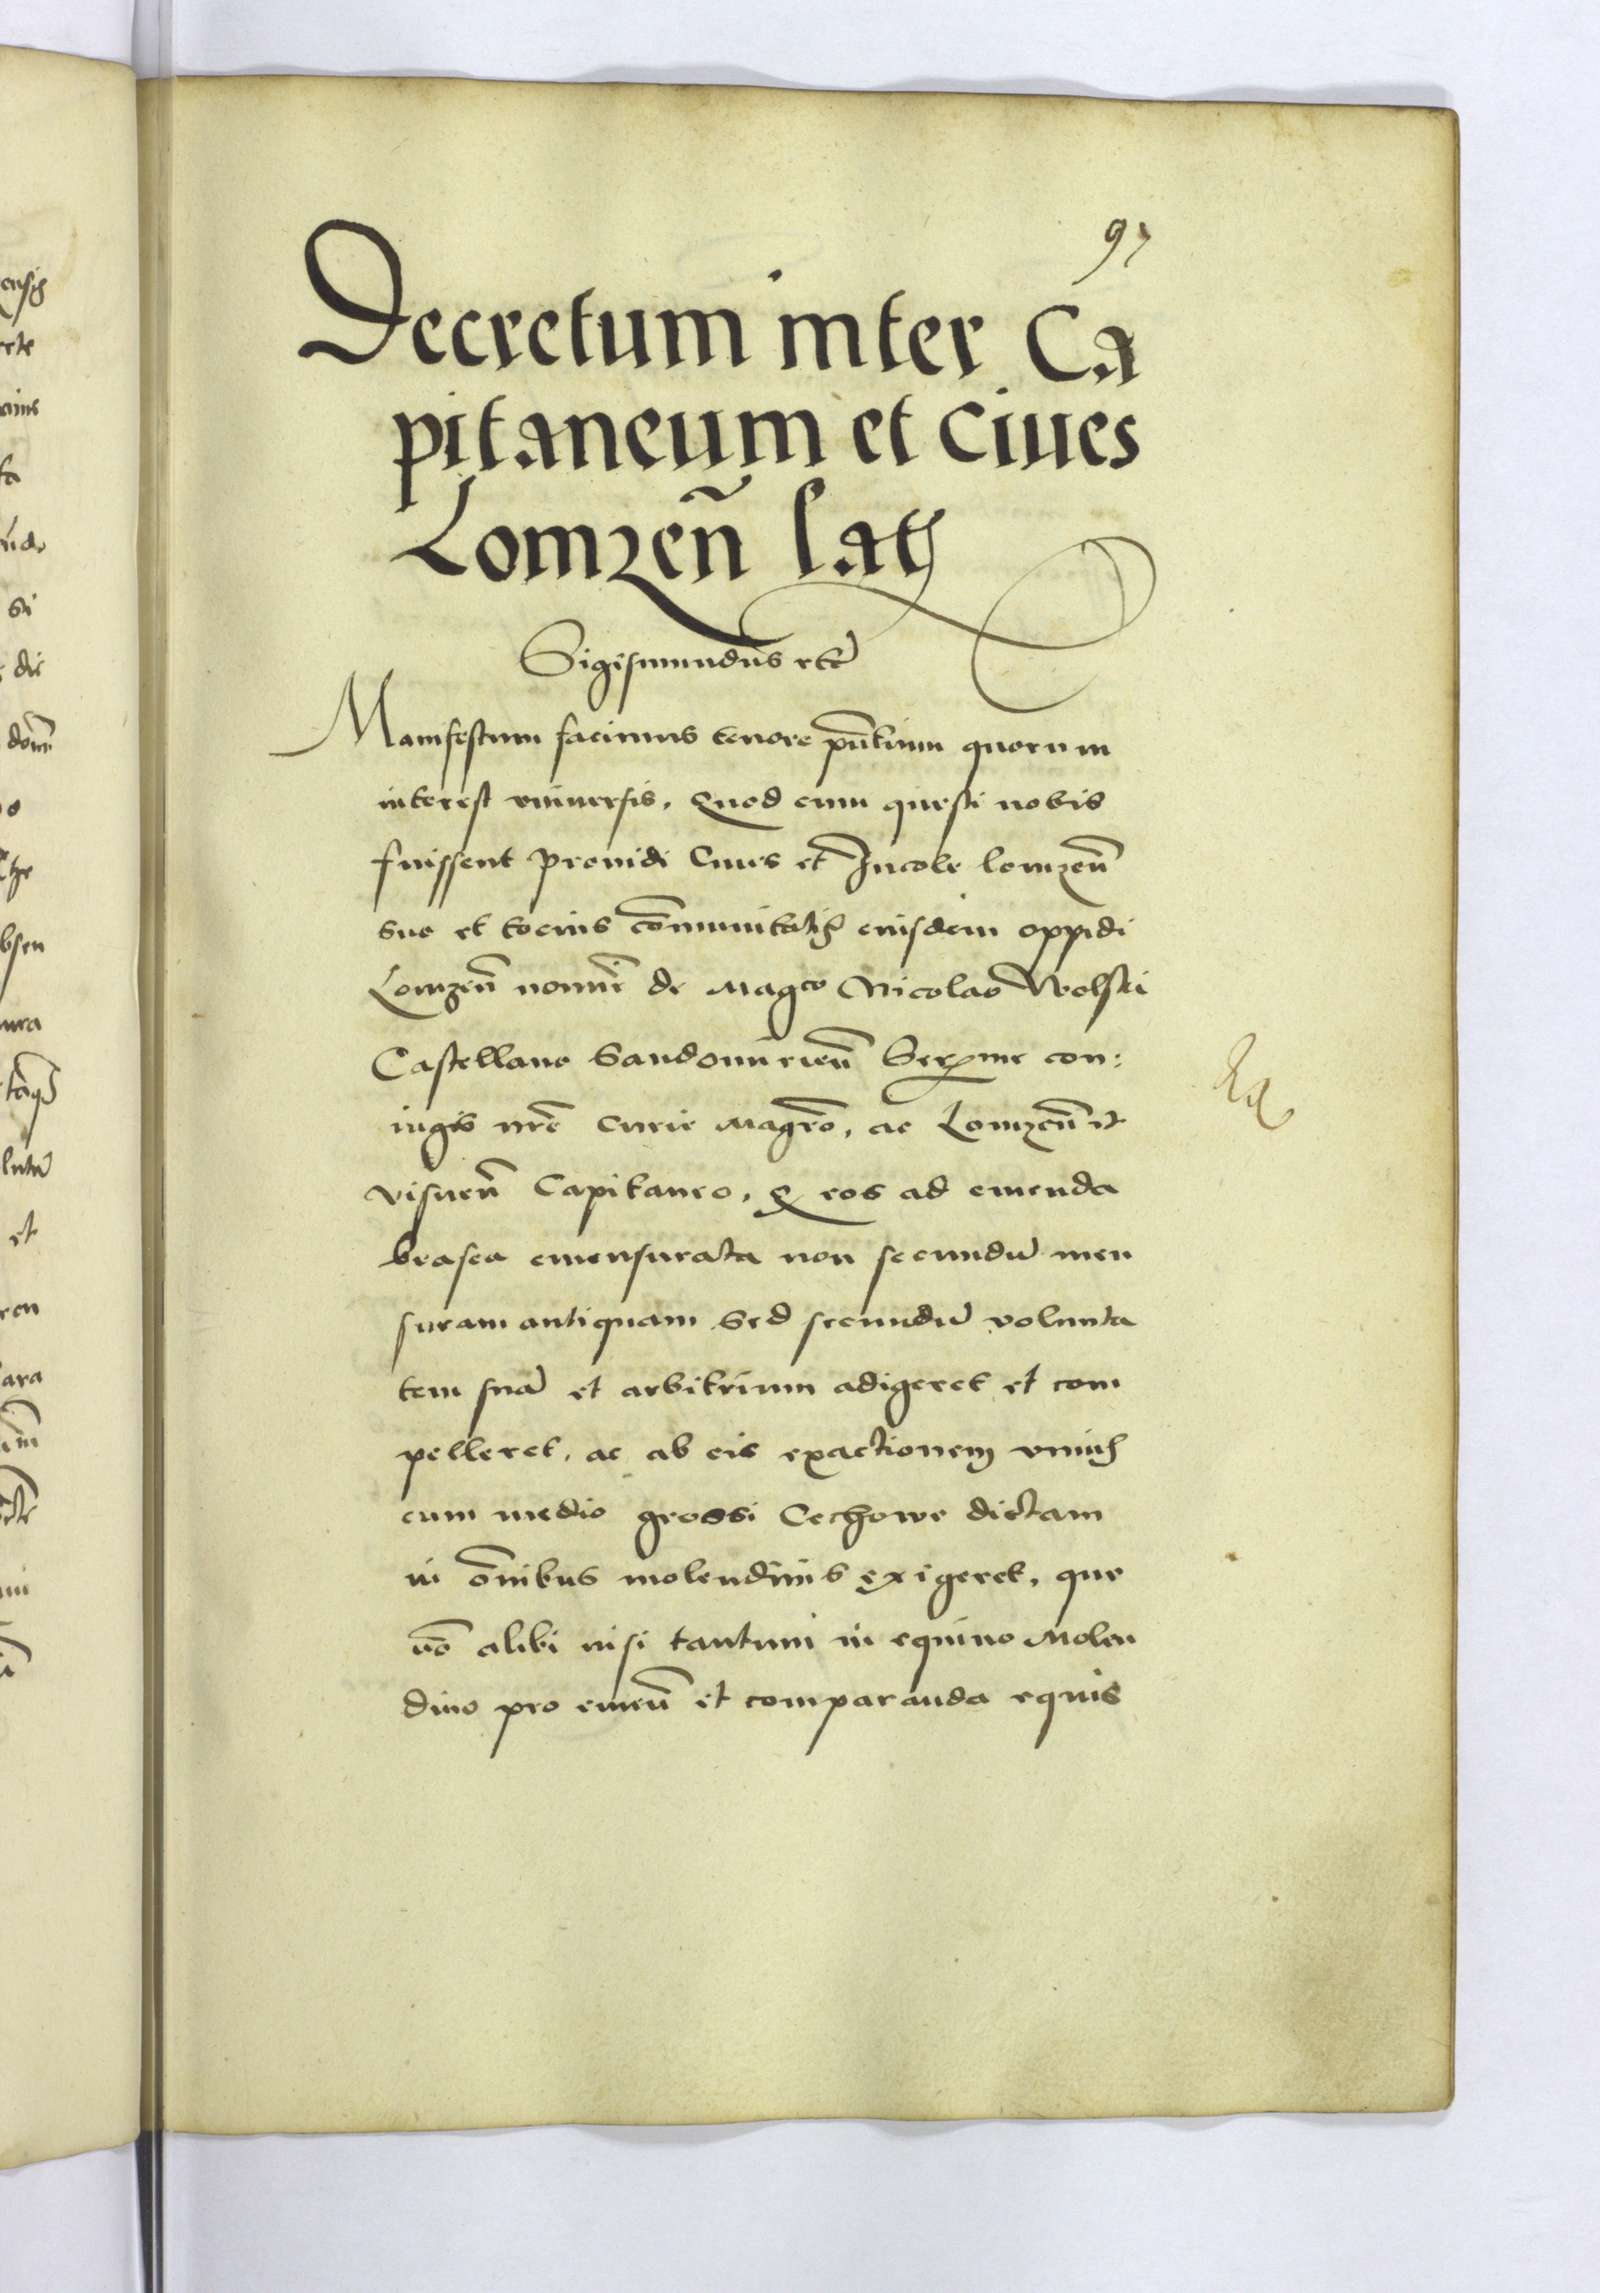 97
Decretum inter Ca
pitaneum et ciues
Lomzeñ
Sigismundus etc̃
Manifestum facimus tenore pñtium quorum
interest vniuersis. Quod cum questi nobis
fuissent prouidi Ciues et Incole lomzeñ
suo et tocius cõmunitatis eiusdem oppidi
Lomzeñ nomine de Magco Nicolao Wolski
Castellano Sandomirieñ Serme con:
iugis nrẽ Curie Magrõ, ac Lomzeñ et
visneñ Capitaneo, Q eos ad emenda
brasea emensurata non secundũ men
suram antiquam sed secundũ volunta
tem suã et arbitrium adigeret et com
pelleret, ac ab eis exactionem vnius
cum medio grossi Cechowe dictam
in õnibus molendinis exigeret, que
nõ alibi nisi tantum in equino Molen
dino pro emeñ et comparanda equis